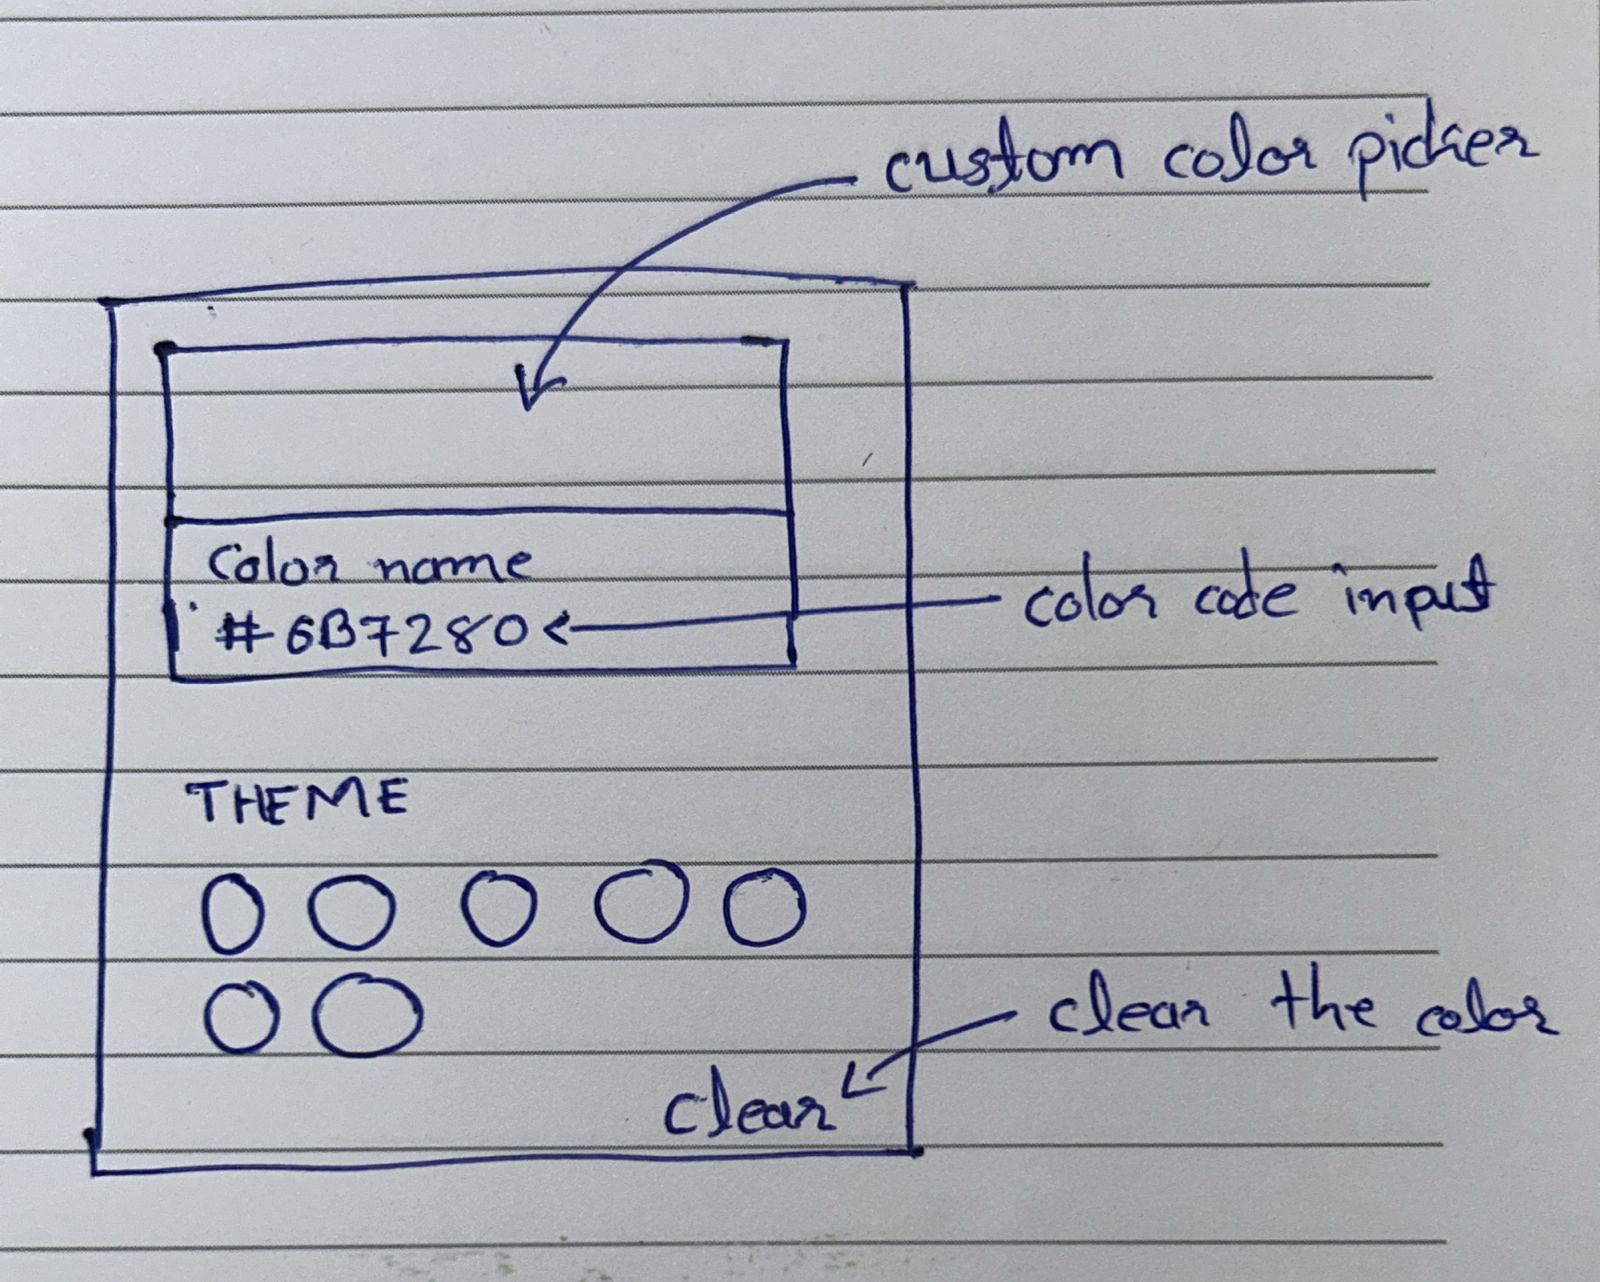 custom color picker
Color name
#6B7280
color code input
THEME
clear the color
Clear